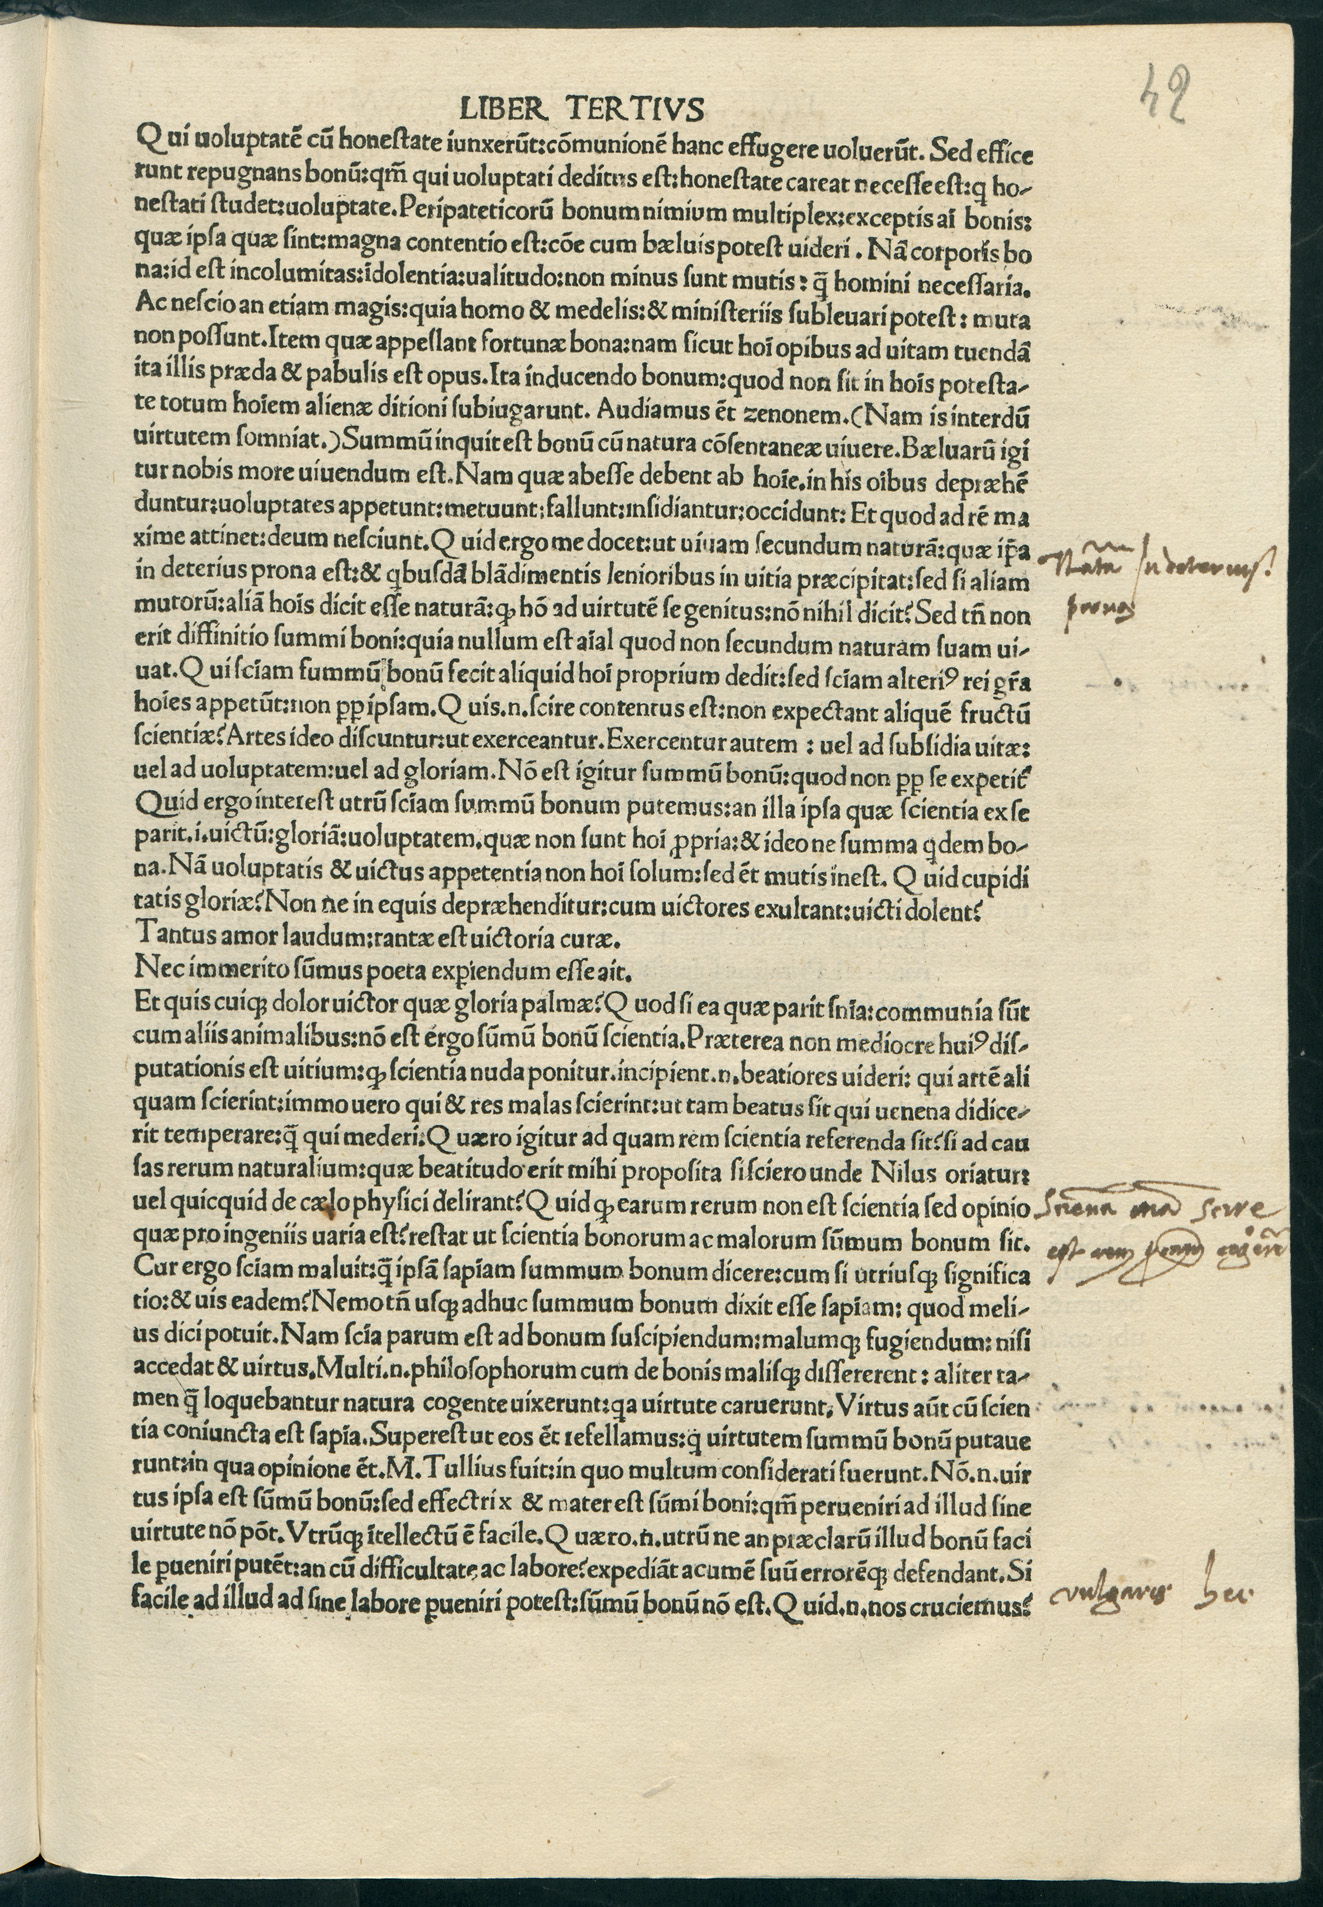 42
LIBER TERTIVS
Qui uoluptatē cū honestate iunxerūt:cōmunionē hanc effugere uoluerūt. Sed effice
runt repugnans bonū:qm̄ qui uoluptati deditus est:honestate careat necesse est:q̱ ho-
nestati studet:uoluptate.Peripateticorū bonum nimium multiplex:exceptis aī bonis:
quæ ipsa quæ sint:magna contentio est:cōe cum bæluis potest uideri. Nā corporis bo
na:id est incolumitas:īdolentia:ualitudo:non minus sunt mutis: q̄ homini necessaria.
Ac nescio an etiam magis:quia homo & medelis:& ministeriis subleuari potest: muta
non possunt.Item quæ appellant fortunæ bona:nam sicut hoī opibus ad uitam tuendā
ita illis præda & pabulis est opus.Ita inducendo bonum:quod non sit in hoīs potesta-
te totum hoīem alienæ ditioni subiugarunt. Audiamus ēt zenonem.(Nam is interdū
uirtutem somniat.)Summū inquit est bonū cū natura cōsentaneæ uiuere.Bæluarū igi
tur nobis more uiuendum est.Nam quæ abesse debent ab hoīe.in his oībus depræhē
duntur:uoluptates appetunt:metuunt:fallunt:insidiantur:occidunt: Et quod ad rē ma
xime attinet:deum nesciunt.Quid ergo me docet:ut uiuam secundum naturā:quæ ip̄a
in deterius prona est:& qbusdā blādimentis lenioribus in uitia præcipitat:sed si aliam
mutorū:aliā hoīs dicit esse naturā:ꝙ hō ad uirtutē se genitus:nō nihil dicit? Sed tn̄ non
erit diffinitio summi boni:quia nullum est aīal quod non secundum naturam suam ui-
uat.Qui scīam summū bonū fecit aliquid hoī proprium dedit:sed scīam alteriꝰ rei gr̄a
hoīes appetūt:non ꝓp ipsam.Quis.n.scire contentus est:non expectant aliquē fructū
scientiæ?Artes ideo discuntur:ut exerceantur.Exercentur autem : uel ad subsidia uitæ:
uel ad uoluptatem:uel ad gloriam.Nō est igitur summū bonū:quod non ꝓp se expetit̄
Quid ergo interest utrū scīam summū bonum putemus:an illa ipsa quæ scientia ex se
parit.i.uictū:gloriā:uoluptatem.quæ non sunt hoī ꝓpria:& ideo ne summa qdem bo-
na.Nā uoluptatis & uictus appetentia non hoī solum:sed ēt mutis inest. Quid cupidi
tatis gloriæ?Non ne in equis depræhenditur:cum uictores exultant:uicti dolent?
Tantus amor laudum:tantæ est uictoria curæ.
Nec immerito sūmus poeta exꝑiendum esse ait.
Et quis cuiqꝫ dolor uictor quæ gloria palmæ?Quod si ea quæ parit snīa:communia sūt
cum aliis animalibus:nō est ergo sūmū bonū scientia.Præterea non mediocre huiꝰ dis-
putationis est uitium:ꝙ scientia nuda ponitur.incipient.n.beatiores uideri: qui artē ali
quam scierint:immo uero qui & res malas scierint:ut tam beatus sit qui uenena didice-
rit temperare:q̄ qui mederi.Quæro igitur ad quam rem scientia referenda sit?si ad cau
sas rerum naturalium:quæ beatitudo erit mihi proposita si sciero unde Nilus oriatur:
uel quicquid de cælo physici delirant?Quid ꝙ earum rerum non est scientia sed opinio
quæ pro ingeniis uaria est?restat ut scientia bonorum ac malorum sūmum bonum sit.
Cur ergo scīam maluit:q̄ ipsā sapīam summum bonum dicere:cum si utriusqꝫ significa
tio:& uis eadem?Nemo tn̄ usqꝫ adhuc summum bonum dixit esse sapīam: quod meli-
us dici potuit.Nam scīa parum est ad bonum suscipiendum:malumqꝫ fugiendum: nisi
accedat & uirtus.Multi.n.philosophorum cum de bonis malisqꝫ dissererent: aliter ta-
men q̄ loquebantur natura cogente uixerunt:qa uirtute caruerunt.Virtus aūt cū scien
tia coniuncta est sapīa.Superest ut eos ēt refellamus:q̱ uirtutem summū bonū putaue
runt:in qua opinione ēt.M.Tullius fuit:in quo multum considerati fuerunt.Nō.n.uir
tus ipsa est sūmū bonū:sed effectrix & mater est sūmi boni:qm̄ perueniri ad illud sine
uirtute nō pōt.Vtrūqꝫ ītellectū ē facile.Quæro.n.utrū ne an præclarū illud bonū faci
le ꝑueniri putēt:an cū difficultate ac labore?expediāt acumē suū errorēqꝫ defendant.Si
facile ad illud ad sine labore ꝑueniri potest:sūmū bonū nō est.Quid.n.nos cruciemus?
Scire
est
vulgaris hec